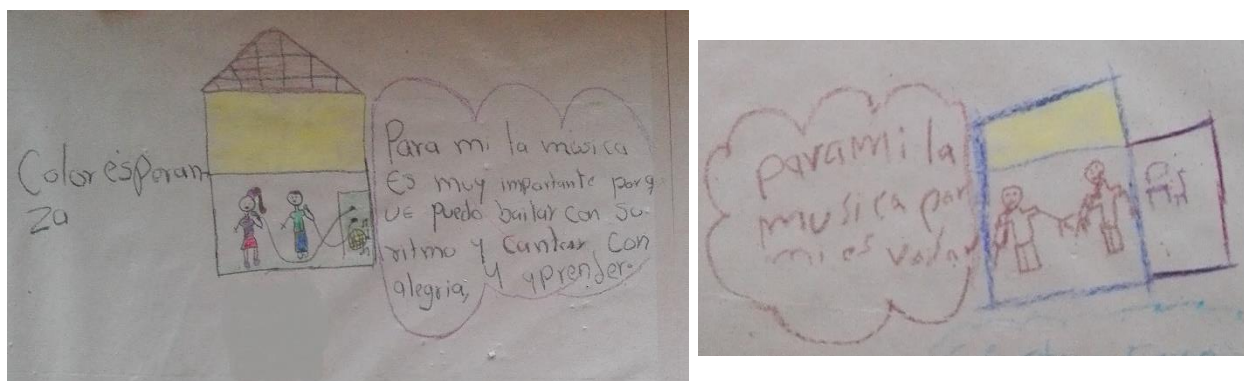 Color esperan
za
Para mi la musica
Es muy importante porq
uE puedo bailar con su
ritmo y cantar con
alegria, y aprender.
para mi la
musica por
mi es